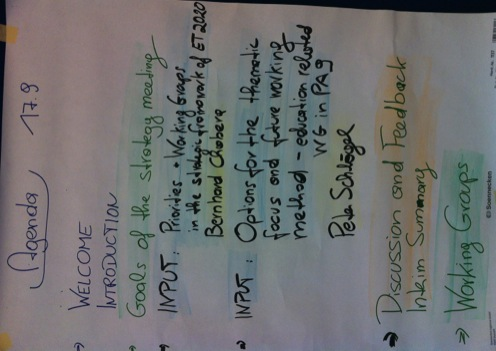 Agenda 17.9
→ WELCOME
INTRODUCTION
Goals of the strategy meeting
→ INPUT: Priorities + Working Groups
in the strategic framework of ET 2020
Bernhard Chabera
→ INPUT: Options for the thematic
focus and future working
method - education related
WG in PA9
Peter Schlögel
⇒ Discussion and Feedback
Interim Summary
⇒ Working Groups